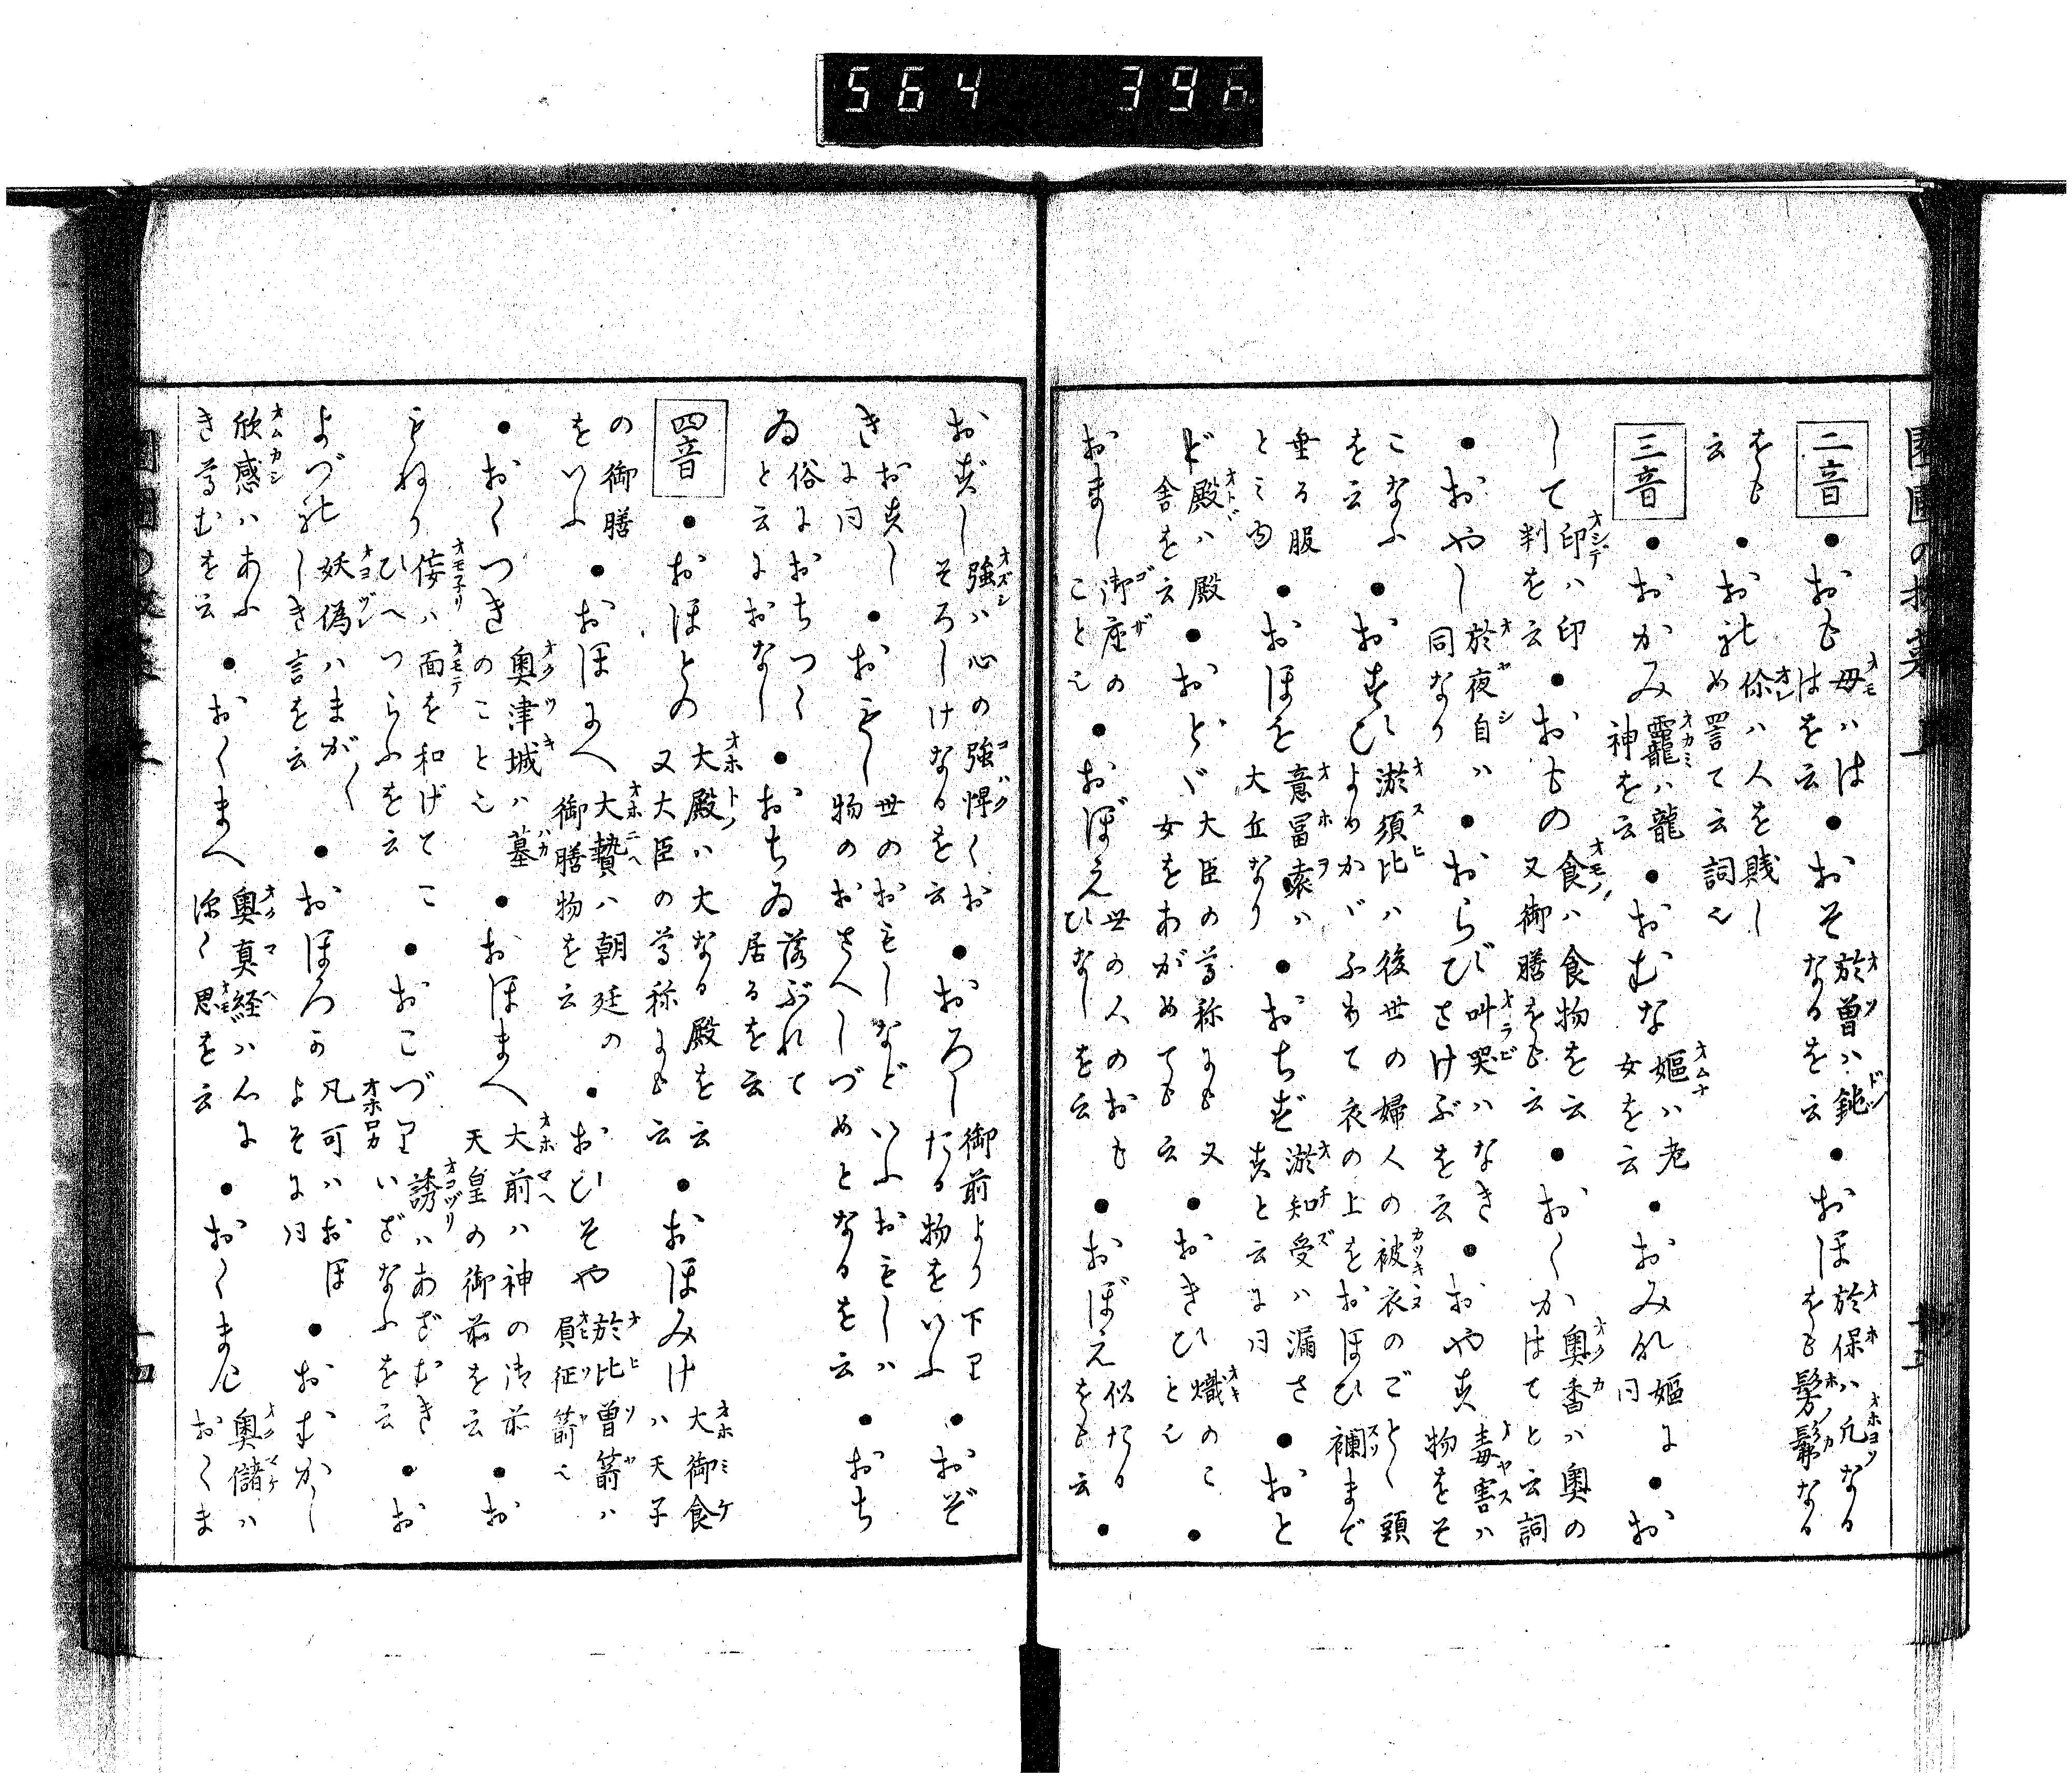 564 396
二音 ●おも 母ハはは を云 ●おそ 於曽ハ鈍なるを云 ●おほ 於保ハ凡なるをも髣髴なる
をも云 ●おれ 你ハ人を賎しめ詈て云詞也
三音 ●おかみ 靇ハ龍神を云 ●おむな 嫗ハ老女を云 ●おみな 嫗に同 ●お
して 印ハ印判を云 ●おもの 食ハ食物を云又御膳をも云 ●おくか 奥香ハ奥のかはてと云詞
●おやし 於夜自ハ同なり ●おらび 叫哭ハなきさけぶを云 ●おやす 毒害ハ物をそ
こなふを云 ●おすひ 淤須比ハ後世の婦人の被衣のごとく頭よりかゞふりて衣の上をおほひ襴まで
垂る服とミゆ ●おほを 意冨袁ハ大丘なり ●おちず 淤知受ハ漏さずと云に同 ●おと
ど 殿ハ殿舎を云 ●おとゞ 大臣の尊称にも又女をあがめても云 ●おきひ 熾のことと也 ●
おまし 御座のことと也 ●おぼえ 世の人のおもひなしを云 ●おぼえ 似たるをも云 ●
おずし 強ハ心の強悍くおそろしけなるを云 ●おろし 御前より下りたる物をいふ ●おぞ
き おずしに同 ●おもし 世のおもしなどいふおもしハ物のおさへしづめとなるを云 ●おち
ゐ 俗におちつくと云におなし ●おちゐ 落ぶれて居るを云
四音 ●おほとの 大殿ハ大なる殿を云又大臣の尊称にも云 ●おほみけ 大御食ハ天子
の御膳をいふ ●おほにへ 大贄ハ朝廷の御膳物を云 ●おひそや 於比曽箭ハ負征箭也
●おくつき 奥津城ハ墓のこと也 ●おほまへ 大前ハ神の御前天皇の御前を云 ●お
もねり 侫ハ面を和げてこひへつらふを云 ●おこづり 誘ハあざむきいざなふを云 ●お
よづれ 妖偽ハまがくしき言を云 ●おほろか 凡可ハおほよそに同 ●おむかし
欣感ハあふき尊むを云 ●おくまへ 奥真経ハ心に深く思を云 ●おくまけ 奥儲ハおくま